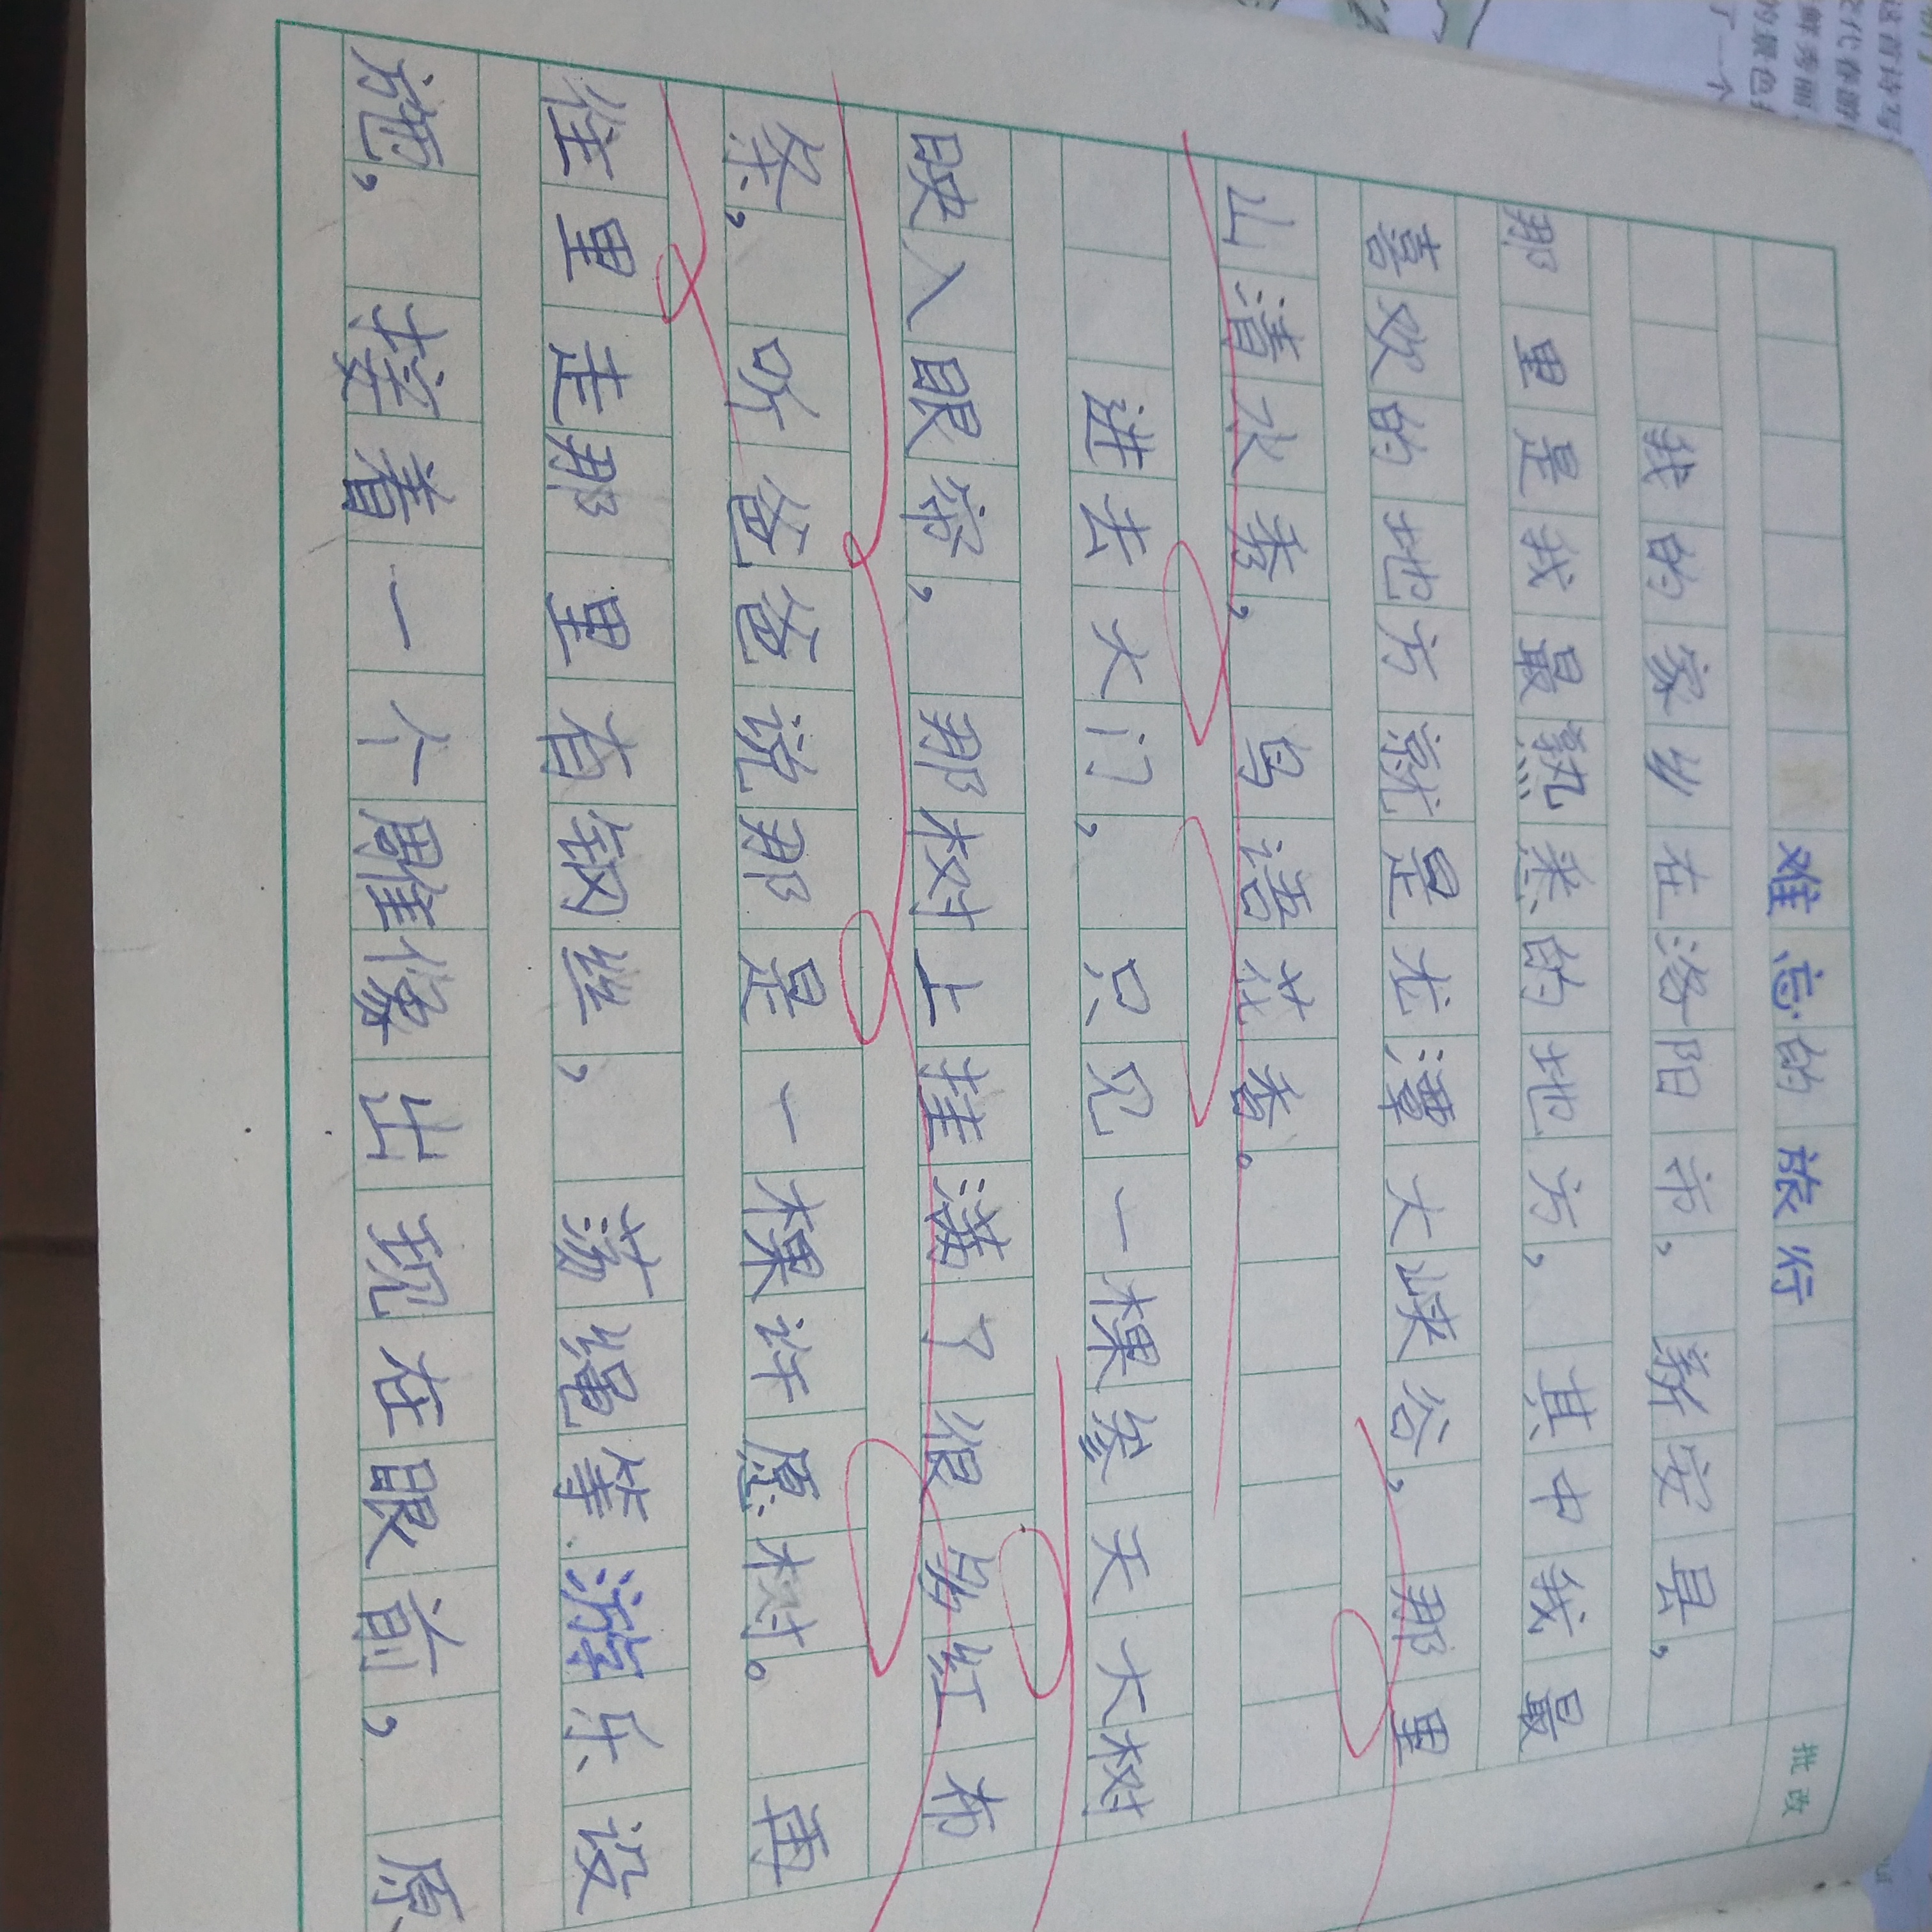 难忘的旅行
我的家乡在洛阳市，新安县，
那里是我最熟悉的地方，其中我最
喜欢的地方就是龙潭大峡谷，那里
山清水秀，鸟语花香。
进去大门，只见一棵参天大树
映入眼帘，那树上挂满了很多红布
条，听爸爸说那是一棵许愿树。再
往里走那里有钢丝，荡绳等游乐设
施，接着一个雕像出现在眼前，原
批改